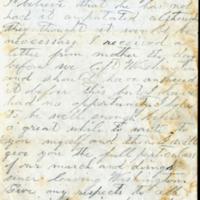 believe that he has not
had it amputated although
they thought it would be
necessary I received a
letter from Mother the day
before we left
and should have answered
it before this but I have
had no opportunity I hope to
be well enough before
a great while to write to
you myself and then I will
give you the full particulars
of our march and
since leaving Washington
Give my respects to all